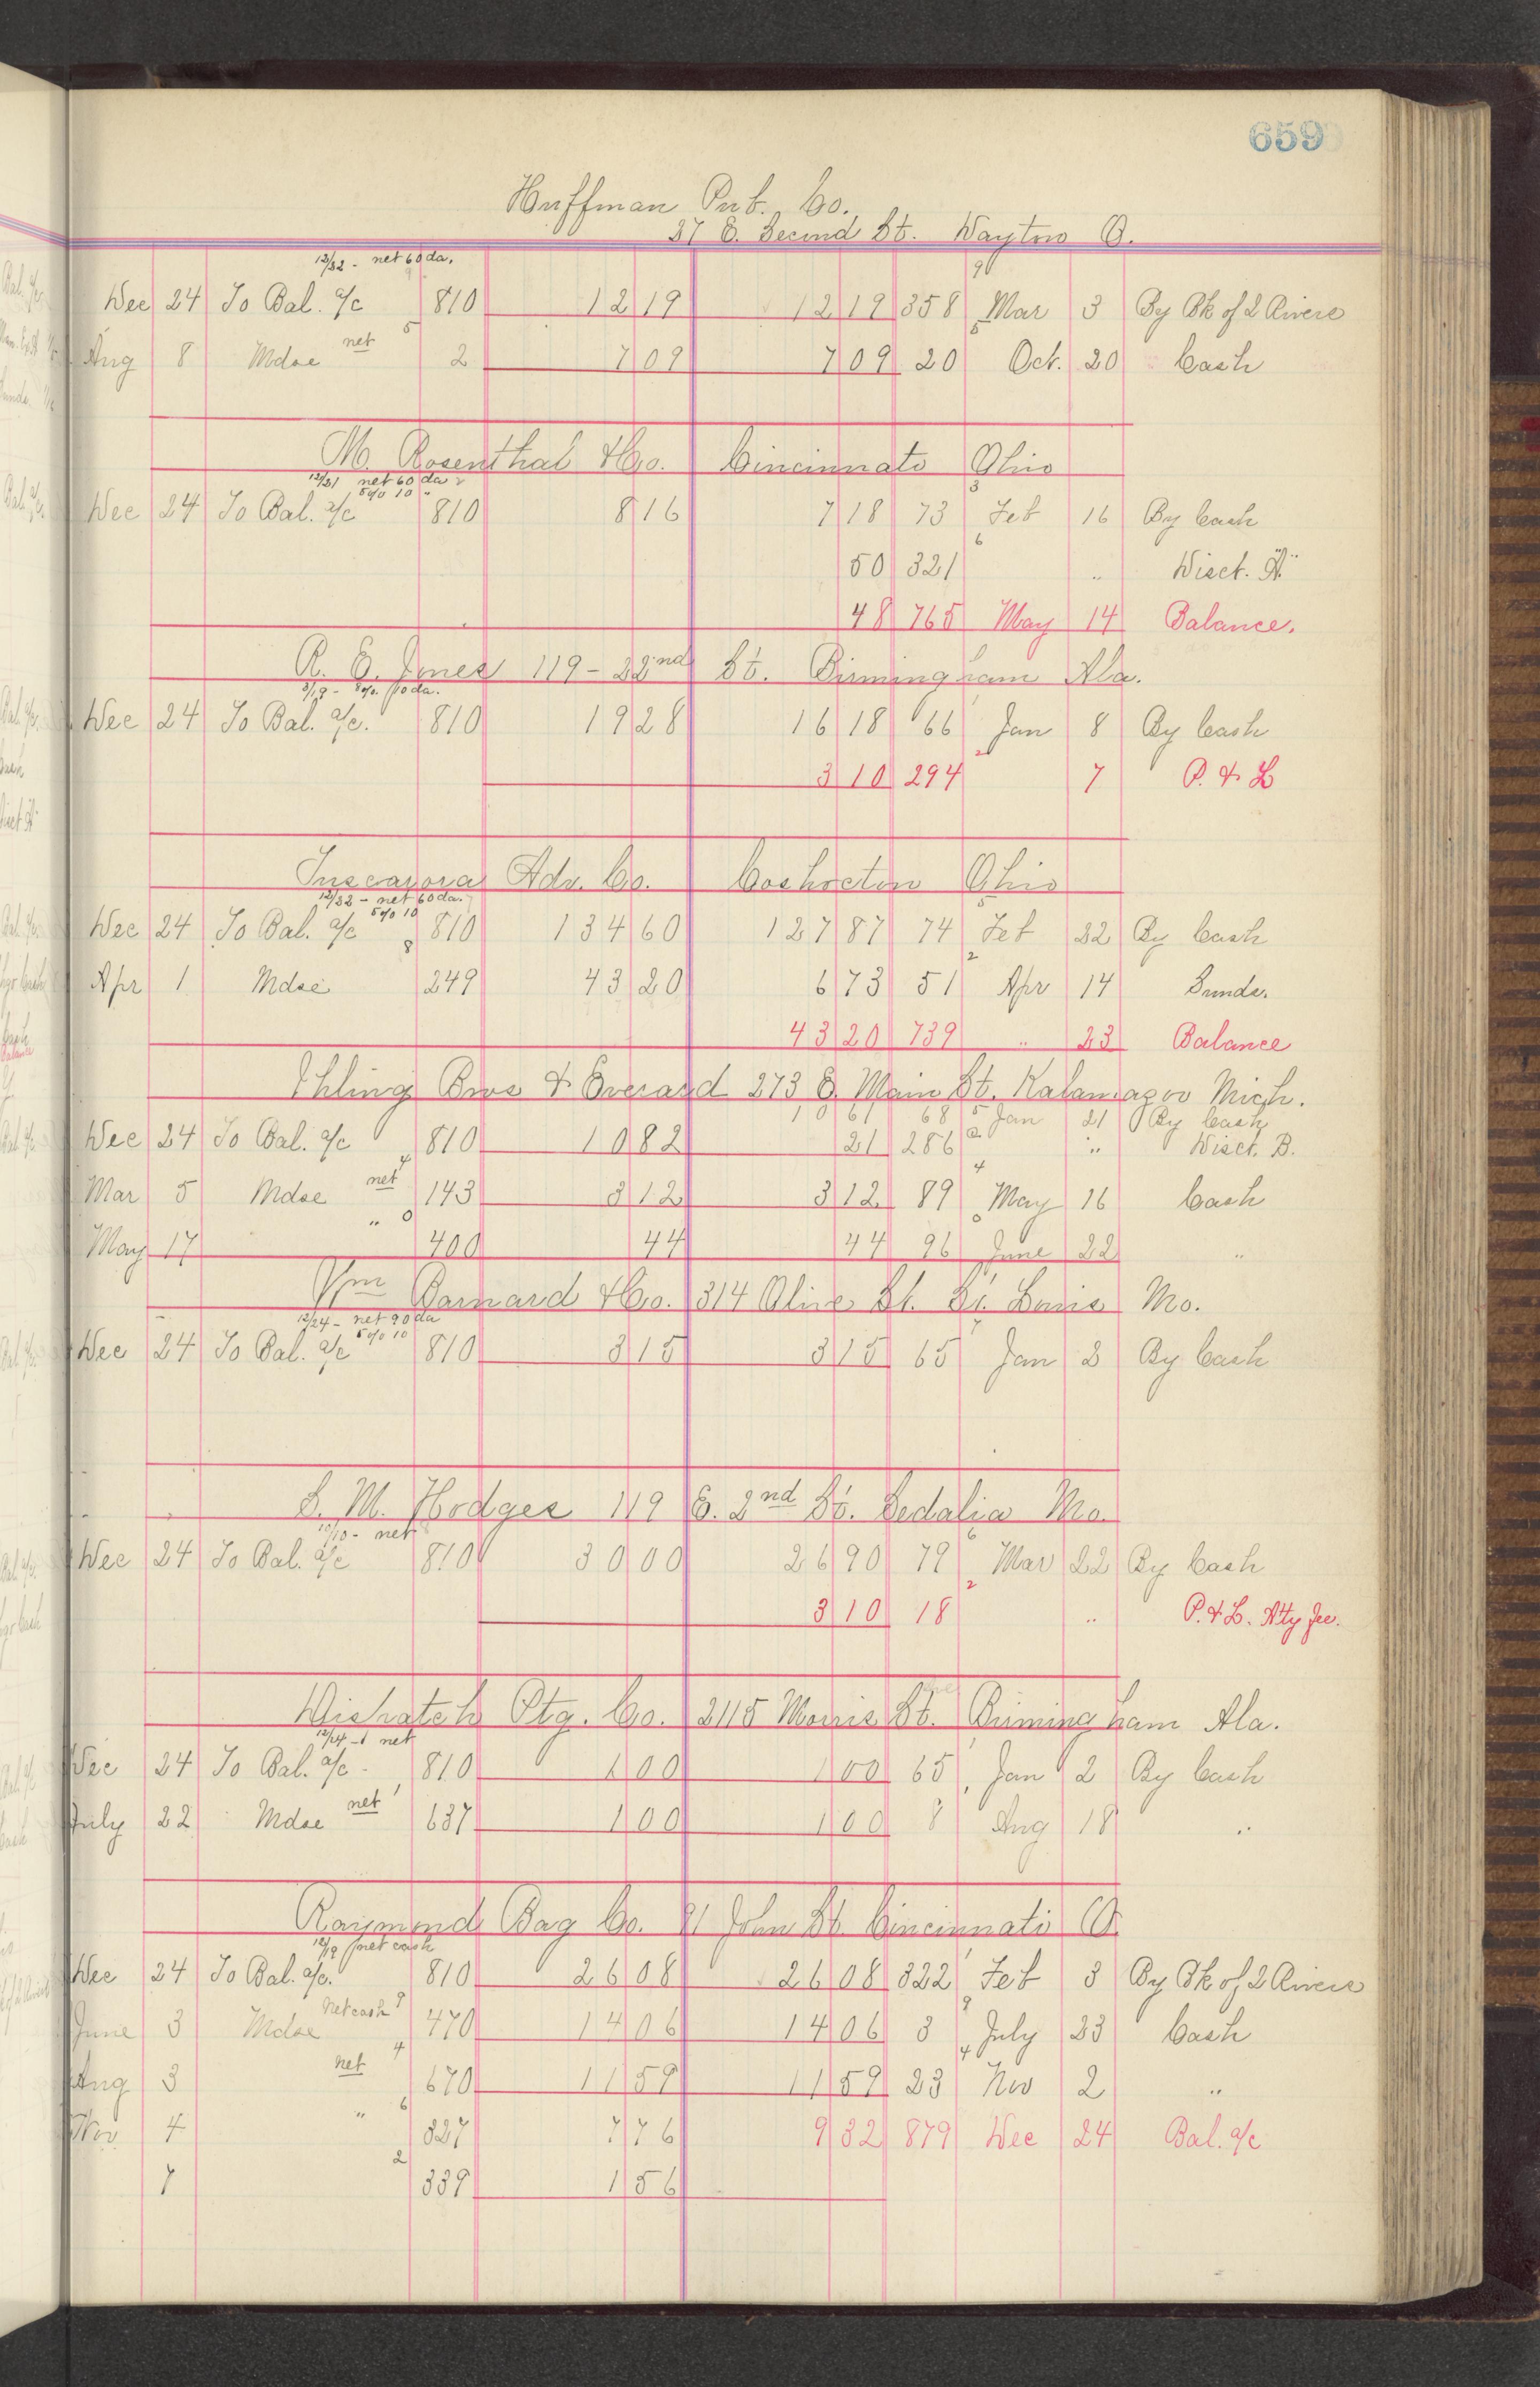 659
Huffman Pub. Co.
37 E. Second St. Dayton O.
12/22 - net 60 da.
Dec 24 To Bal. a/c 810 12 19 12 19 358 Mar 3 By Bk of 2 Rivers
Aug 8 Mdse net 2 7 09 7 09 20 Oct. 20 Cash
M. Rosenthal & Co. Cincinnati Ohio
12/21 net 60 da
5% 10 "
Dec 24 To Bal. a/c 810 8 16 7 18 73 Feb 16 By Cash
50 321 " Disct. "A"
48 765 May 14 Balance.
R. E. Jones 119 - 22nd St. Birmingham Ala.
Dec 24 To Bal. a/c. 810 19 28 16 18 66 Jan 8 By Cash
3 10 294 7 P. & L
Tuscarora Adv. Co. Coshocton Ohio
12/22 - net 60 da.
5% 10
Dec 24 To Bal. a/c 810 134 60 127 87 74 Feb 22 By Cash
Apr 1 Mdse 249 43 20 6 73 51 Apr 14 Sunds.
43 20 739 " 23 Balance
Ihling Bros & Everard 273 E. Main St. Kalamazoo Mich.
10 61 68 Jan 21 By Cash
Dec 24 To Bal. a/c 810 10 82 21 286 " Disct. B.
Mar 5 Mdse net 143 3 12 3 12 89 May 16 Cash
May 17 " 400 44 44 96 June 22 "
Wm Barnard & Co. 314 Olive St. St. Louis Mo.
12/24 - net 90 da
5% 10
Dec 24 To Bal. a/c 810 3 15 3 15 65 Jan 2 By Cash
S. M. Hodges 119 E. 2nd St. Sedalia Mo.
10/10 - net
Dec 24 To Bal. a/c 810 30 00 26 90 79 Mar 22 By Cash
3 10 18 " P. & L. Atty fee.
Dispatch Ptg. Co. 2115 Morris St. Birmingham Ala.
12/14 - net
Dec 24 To Bal. a/c - 810 1 00 1 00 65 Jan 2 By Cash
July 22 Mdse net 637 1 00 1 00 8 Aug 18 "
Raymond Bag Co. John St. Cincinnati O.
12/9 net cash
Dec 24 To Bal. a/c. 810 26 08 26 08 322 Feb 3 By Bk of 2 Rivers
June 3 Mdse Net cash 470 14 06 14 06 3 July 23 Cash
Aug 3 net 670 11 59 11 59 23 Nov 2 "
Nov 4 " 327 7 76 9 32 879 Dec 24 Bal. a/c
7 339 1 56